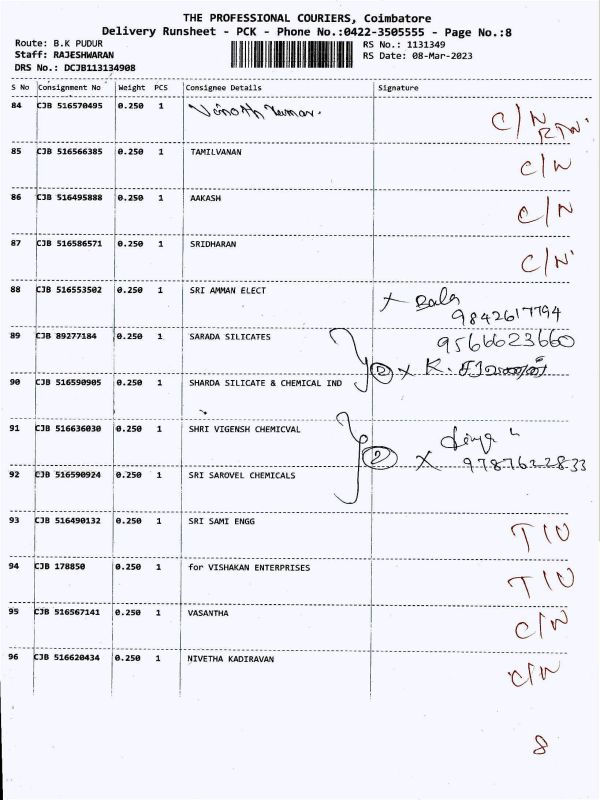 THE PROFESSIONAL COURIERS, Coimbatore
Delivery Runsheet - PCK - Phone No.:0422-3505555 - Page No.:8
Route: B.K PUDUR RS No.: 1131349
Staff: RAJESHWARAN RS Date: 08-Mar-2023
DRS No.: DCJB113134908
S No Consignment No Weight PCS Consignee Details Signature
84 CJB 516570495 0.250 1 Vinoth Kumar. C/N
85 CJB 516566385 0.250 1 TAMILVANAN C/N
86 CJB 516495888 0.250 1 AAKASH C/N
87 CJB 516586571 0.250 1 SRIDHARAN C/N
88 CJB 516553502 0.250 1 SRI AMMAN ELECT X Bala
9842617794
89 CJB 89277184 0.250 1 SARADA SILICATES 9566623660
2 X K.
90 CJB 516590905 0.250 1 SHARDA SILICATE & CHEMICAL IND
91 CJB 516636030 0.250 1 SHRI VIGENSH CHEMICVAL
2 X 9787632833
92 CJB 516590924 0.250 1 SRI SAROVEL CHEMICALS
93 CJB 516490132 0.250 1 SRI SAMI ENGG T10
94 CJB 178850 0.250 1 for VISHAKAN ENTERPRISES T10
95 CJB 516567141 0.250 1 VASANTHA C/N
96 CJB 516620434 0.250 1 NIVETHA KADIRAVAN C/N
8